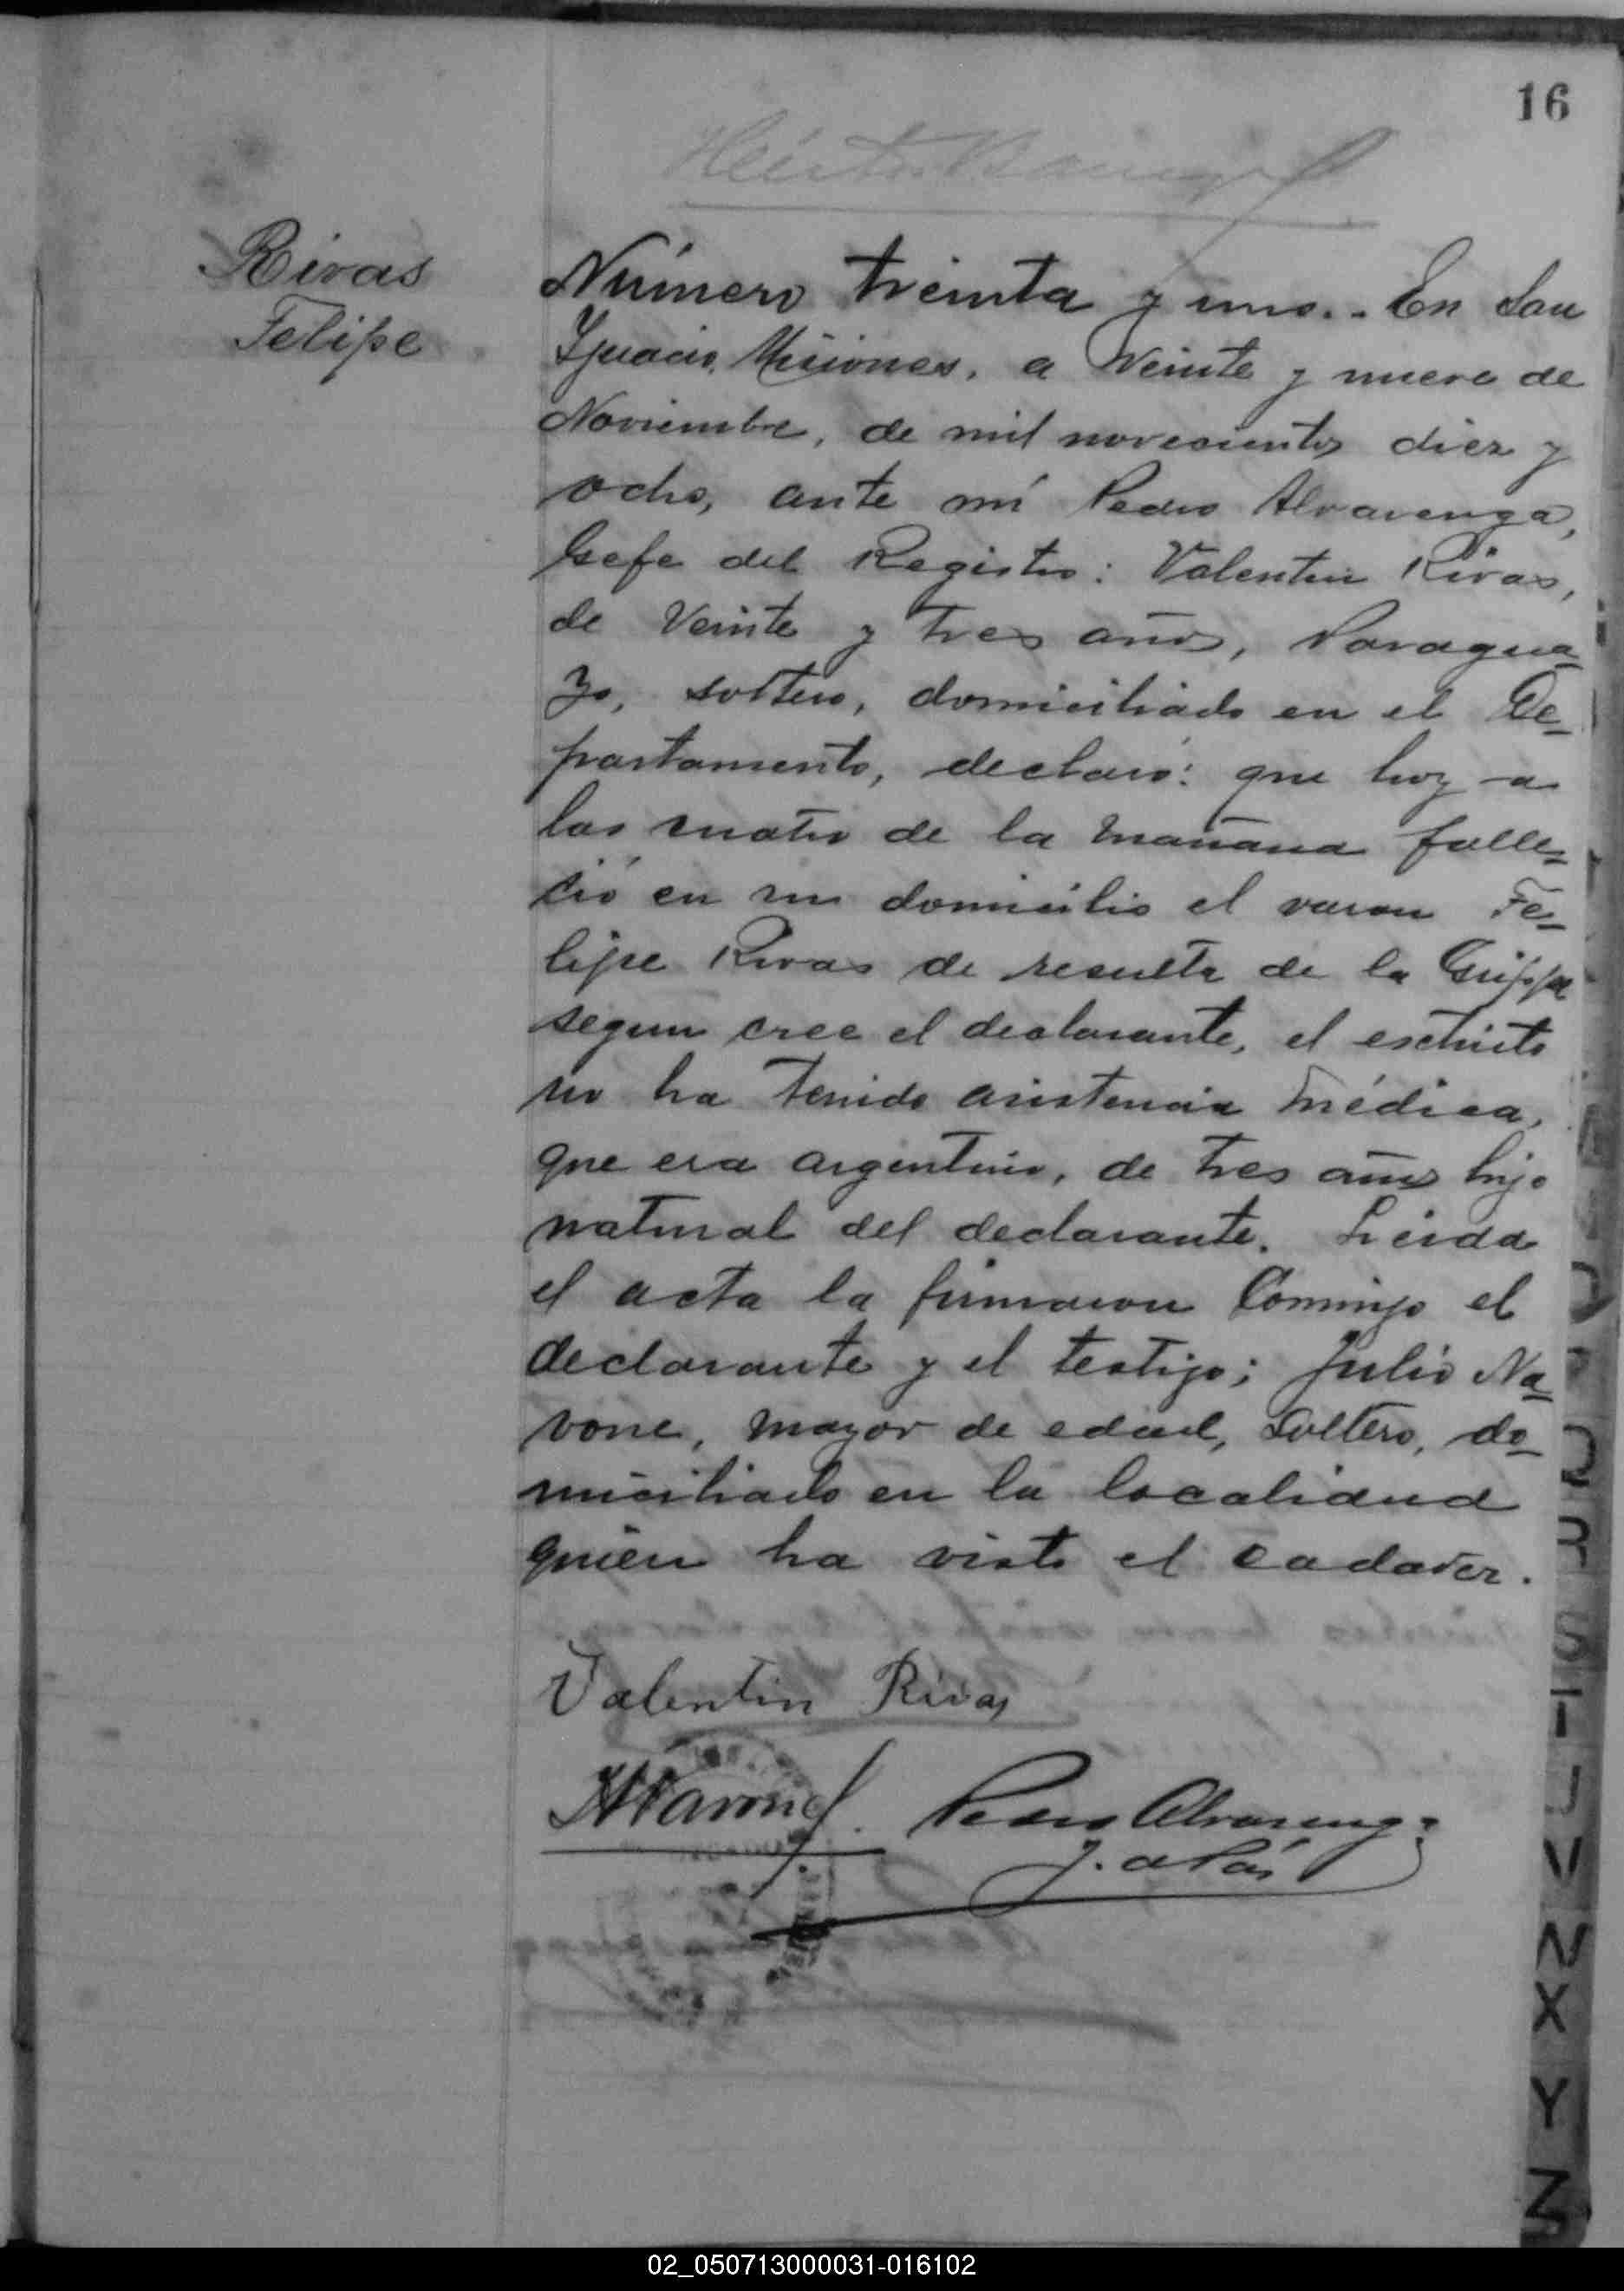 16
Rivas
Felipe
Número treinta y uno.. En San
Ygnacio, Misiones, a Veinte y nueve de
Noviembre, de mil novecientos diez y
ocho, ante mí Pedro Alvarenga,
Gefe del Registro: Valentin Rivas,
de Veinte y tres años, Paragua=
yo, soltero, domiciliado en el De=
partamento, declaró: que hoy a
las cuatro de la mañana falle=
ció en su domicilio el varon Fe=
lipe Rivas de resulta de la Grippe
segun cree el declarante, el esctinto
no ha tenido asistencia médica,
que era argentino, de tres años hijo
natural del declarante. Leida
el acta la firmaron Conmigo el
declarante y el testigo; Julio Na=
vone, mayor de edad, soltero, do=
miciliado en la localidad
quien ha visto el cadaver.
Valentin Rivas
JNavone. Pedro Alvarenga
J. de Paz
R
S
T
U
V
W
X
Y
Z
02_050713000031-016102